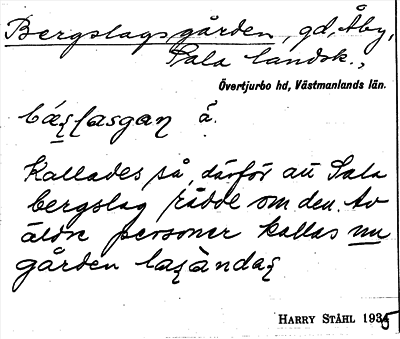 Bergslagsgården, gd, Åby,
Sala landsk.,
Övertjurbo hd, Västmanlands län.
å.
Kallades så, därför att Sala
bergslag rådde om den. Av
äldre personer kallas nu
gården
HARRY STÅHL 1935